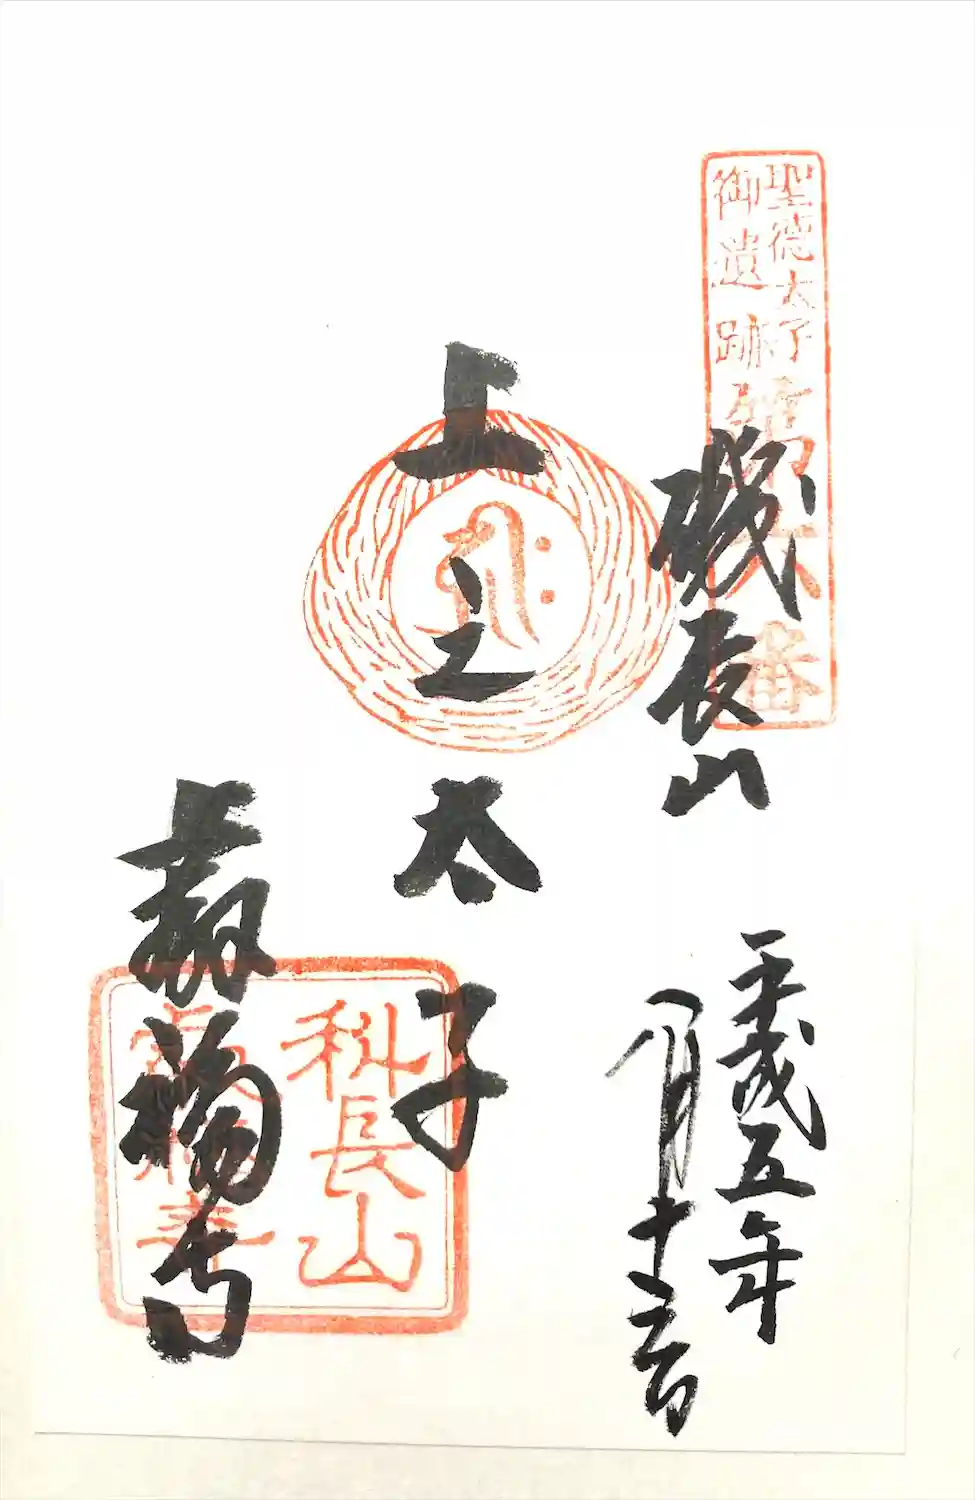 聖徳太子
御遺跡
番
磯長山
平成五年
八月十六日
上之太子
叡福寺
科長山
叡福寺